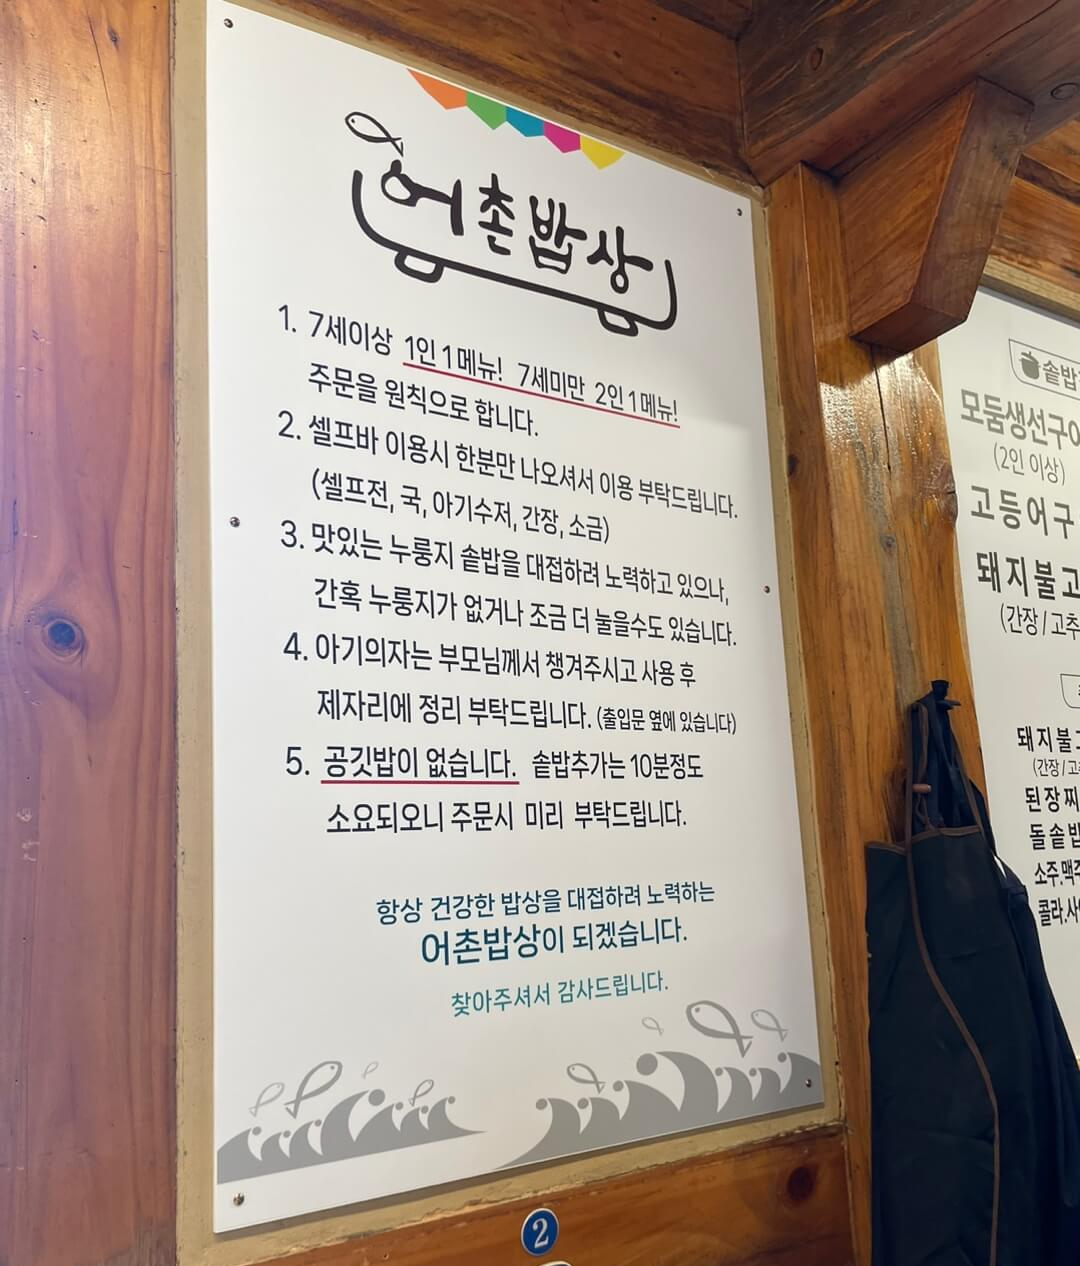 어촌밥상
1. 7세이상 1인 1메뉴! 7세미만 2인 1메뉴!
주문을 원칙으로 합니다.
2. 셀프바 이용시 한분만 나오셔서 이용 부탁드립니다.
(셀프전, 국, 아기수저, 간장, 소금)
3. 맛있는 누룽지 솥밥을 대접하려 노력하고 있으나,
간혹 누룽지가 없거나 조금 더 눌을수도 있습니다.
4. 아기의자는 부모님께서 챙겨주시고 사용 후
제자리에 정리 부탁드립니다. (출입문 옆에 있습니다)
5. 공깃밥이 없습니다. 솥밥추가는 10분정도
소요되오니 주문시 미리 부탁드립니다.
항상 건강한 밥상을 대접하려 노력하는
어촌밥상이 되겠습니다.
찾아주셔서 감사드립니다.
2
솥밥
모둠생선구
(2인 이상)
고등어구
돼지불고
(간장 / 고추
돼지불고
(간장 / 고
된장찌
돌솥밥
소주.맥주
콜라.사